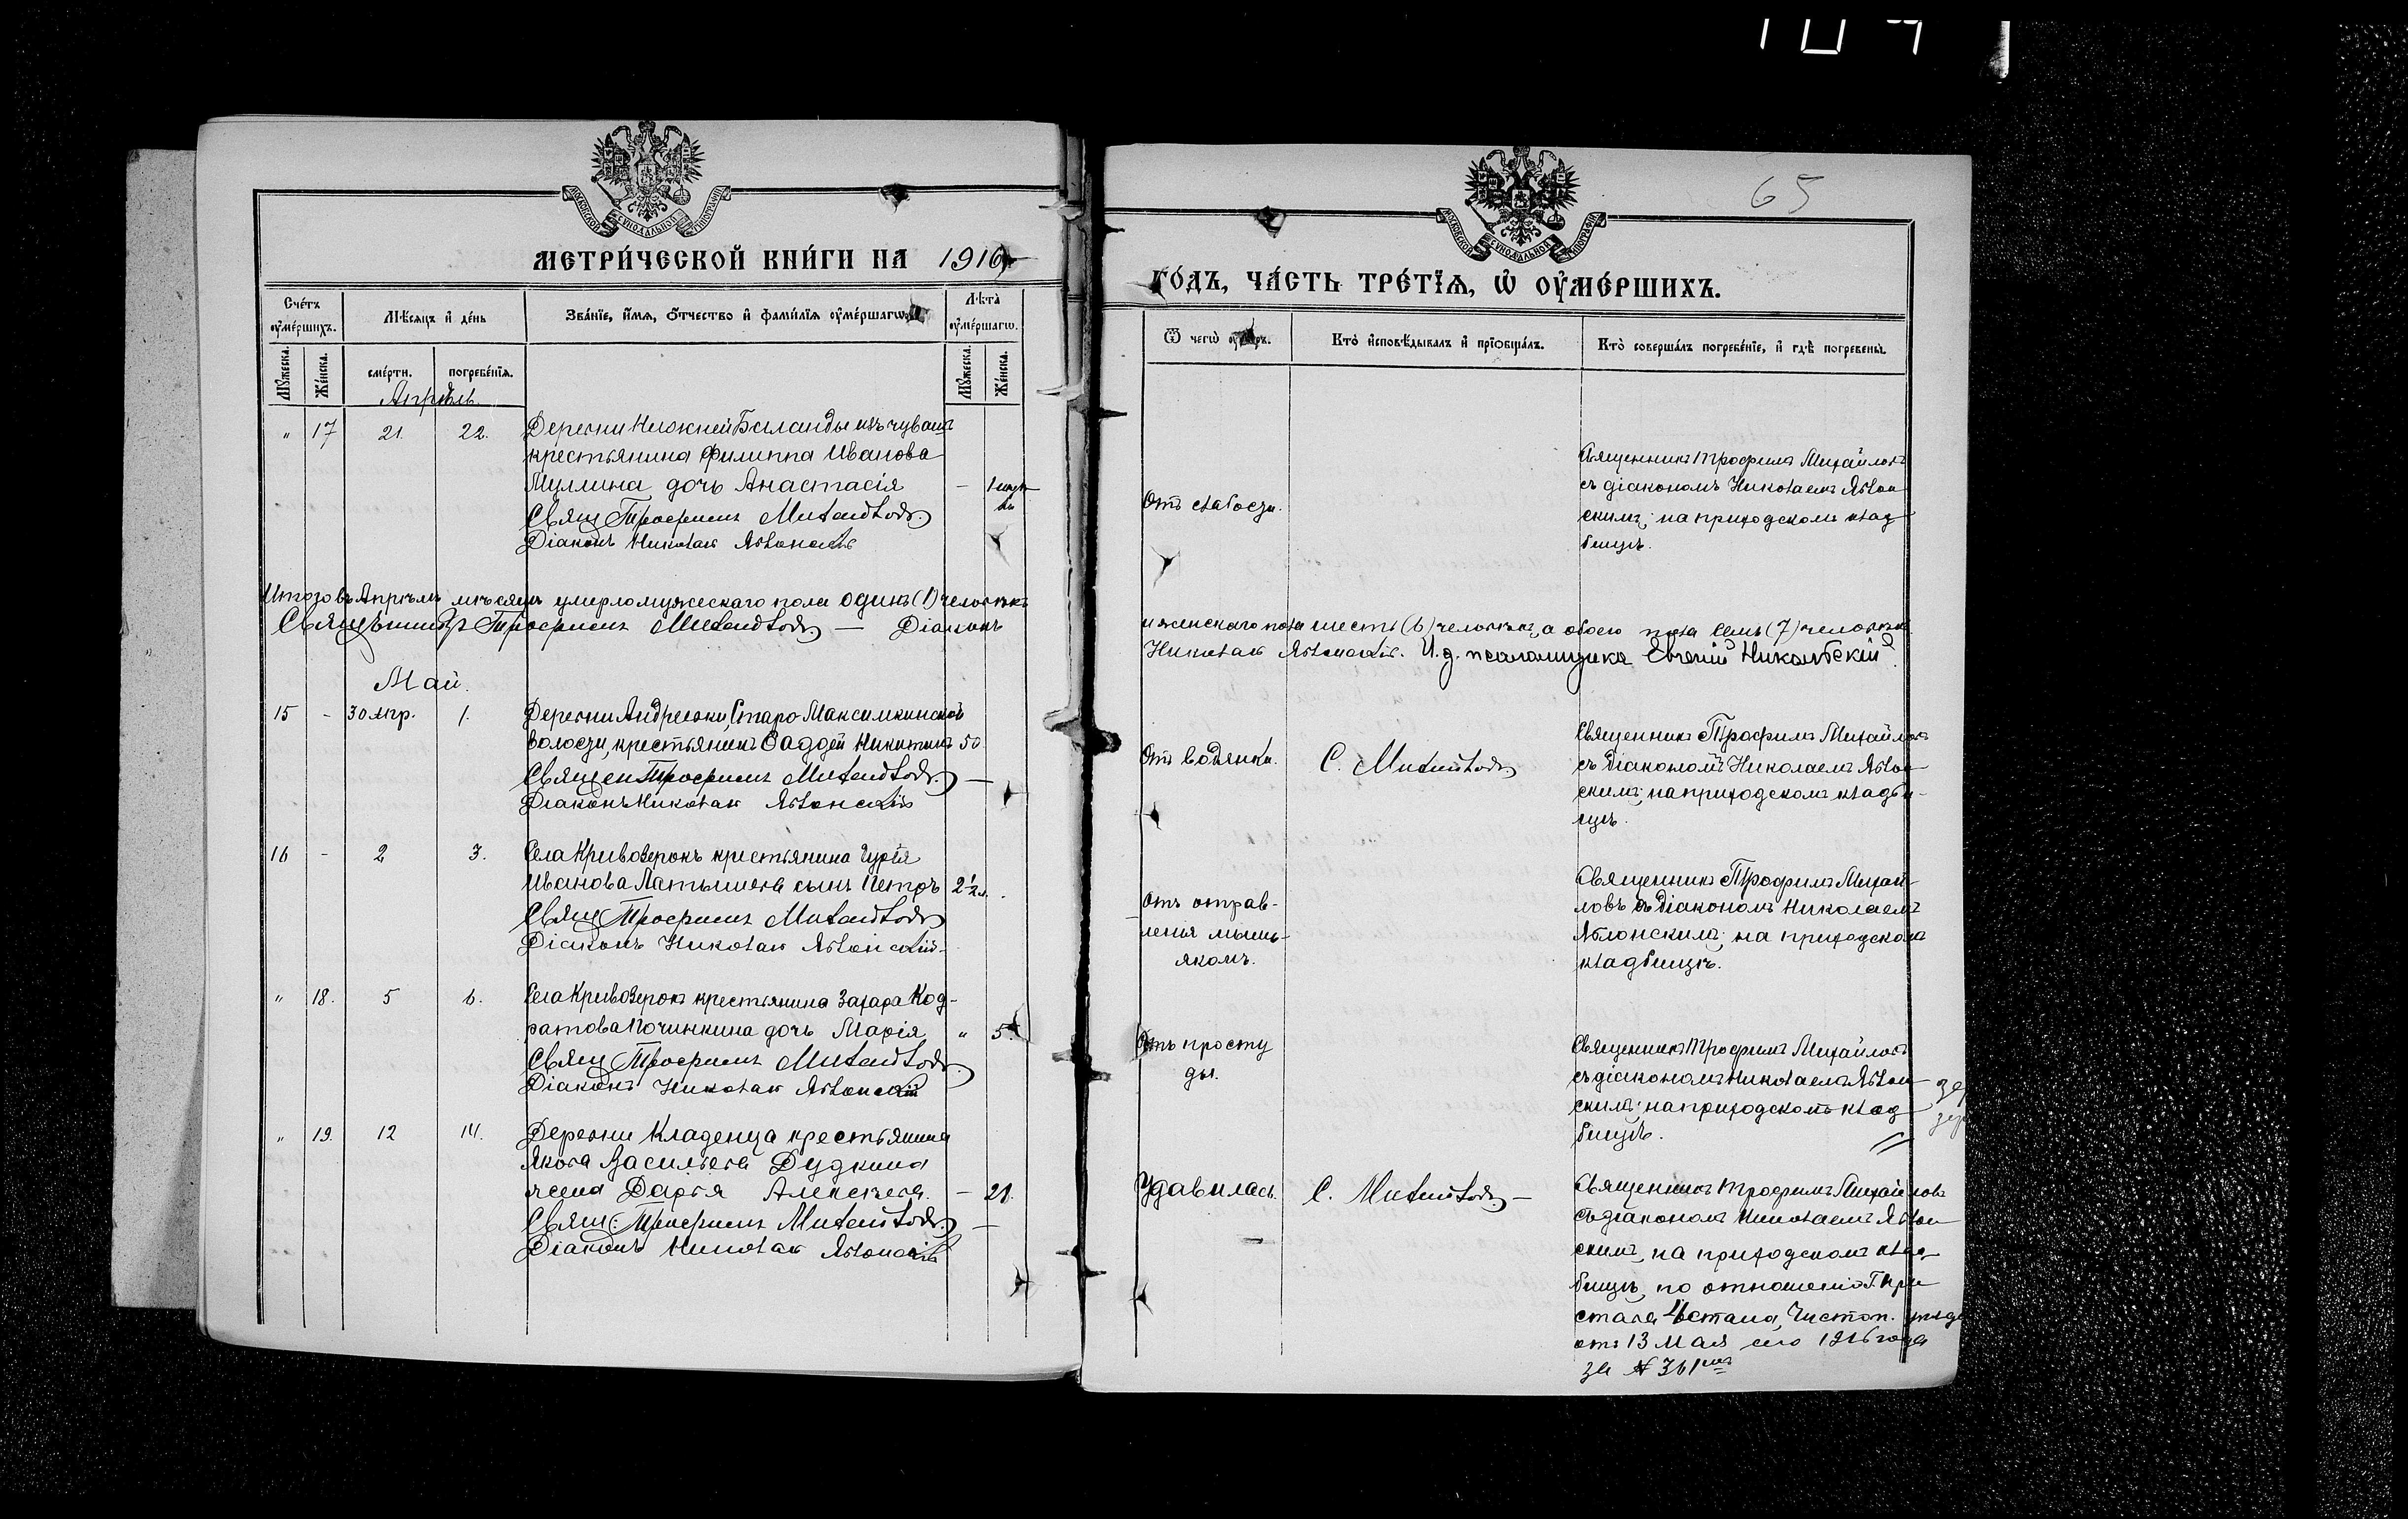 65
МОСКОВСКОЙ СѴНОДАЛЬНОЙ ТИПОГРАФІИ
МОСКОВСКОЙ СѴНОДАЛЬНОЙ ТИПОГРАФІИ
МЕТРИ́ЧЕСКОЙ КНИ́ГИ НА 1916
ГО́ДЪ, ЧА́СТЬ ТРЕ́ТЇѦ, Ѡ҆ ОУ҆МЕ́РШИХЪ.
Сче́тъ оу҆ме́ршихъ.
Мѣ́сяцъ и҆ де́нь
Зва́нїе, и҆́мя, ѻ҆́тчество и҆ фами́лїя оу҆ме́ршагѡ.
Лѣ́та оу҆ме́ршагѡ.
Мꙋ́жеска. Же́нска. сме́рти. погребе́нїя. Мꙋ́жеска. Же́нска.
Ѿ чегѡ̀
Кто̀ и҆сповѣ́дывалъ и҆ прїѡбща́лъ.
Кто̀ соверша́лъ погребе́нїе, и҆ гдѣ̀ погребены̀.
Апрѣль.
" 17 21. 22. Деревни Нижней Баланды изъ чувашъ
крестьянина Филиппа Иванова
Муллина дочь Анастасія –
Свящ Трофимъ Михайловъ.
Діаконъ Николай Яблонскій
Отъ слабости.
Священникъ Трофимъ Михайловъ
съ діакономъ Николаемъ Яблон
скимъ; на приходскомъ клад
бищѣ.
Итого въ Апрѣлѣ мѣсяцѣ умерло мужескаго пола одинъ (1) человѣкъ
и женскаго пола шесть (6) человѣкъ, а обоего пола семь (7) человѣкъ
Священникъ Трофимъ Михайловъ. — Діаконъ
Николай Яблонскій. И. д. псаломщика Евгеній Никольскій.
Май.
15 - 30 Апр. 1. Деревни Андреевки, Старо-Максимкинской
волости, крестьянинъ Ѳаддей Никитинъ 50.
Священ Трофимъ Михайловъ. —
Діаконъ Николай Яблонскій
Отъ водянки. С. Михайловъ
Священникъ Трофимъ Михайловъ
съ діакономъ Николаемъ Яблон
скимъ; на приходскомъ кладби-
щѣ.
16 - 2 3. Села Кривозерокъ крестьянина Гурія
Иванова Латышева сынъ Петръ 2½ л.
Свящ Трофимъ Михайловъ
Діаконъ Николай Яблонскій.
Отъ отрав-
ленья мышь-
якомъ.
Священникъ Трофимъ Михай-
ловъ съ діакономъ Николаемъ
Яблонскимъ; на приходскомъ
кладбищѣ.
" 18. 5 6. Села Кривозерокъ крестьянина Захара Код-
ратова Починкина дочь Марія " 5
Свящ Трофимъ Михайловъ.
Діаконъ Николай Яблонскій
Отъ просту
ды.
Священникъ Трофимъ Михайловъ
съ діакономъ Николаемъ Яблон
скимъ; на приходскомъ клад
бищѣ.
" 19. 12 14. Деревни Кладенца крестьянина
Якова Васильева Дудкина
жена Дарья Алексѣева. – 21.
Свящ: Трофимъ Михайловъ. —
Діаконъ Николай Яблонскій
Удавилась. С. Михайловъ —
Священникъ Трофимъ Михайловъ
съ діакономъ Николаемъ Яблон
скимъ, на приходскомъ клад
бищѣ, по отношенію Г. При
става 4 стана, Чистоп. уѣзда
отъ 13 Мая сего 1916 года
за № 361